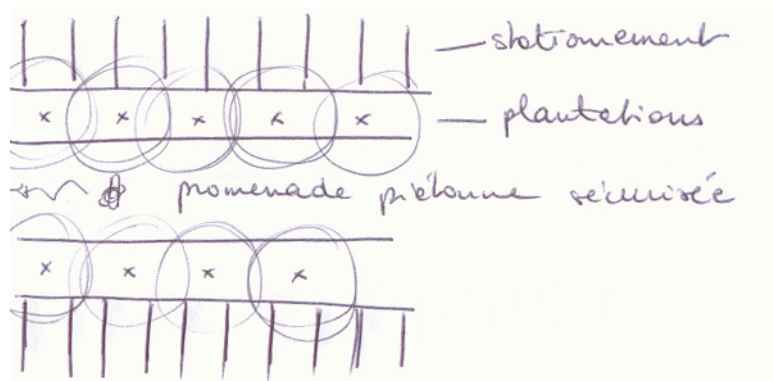 stationnement
plantations
promenade piétonne sécurisée